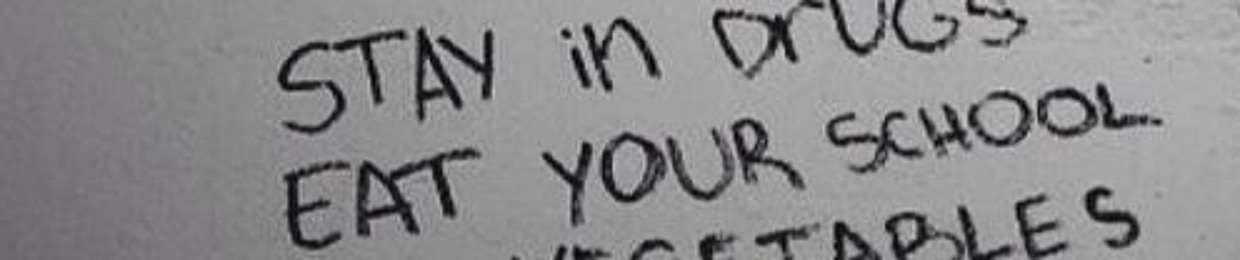 STAY in DrUGS
EAT YOUR SCHOOL
VEGETABLES